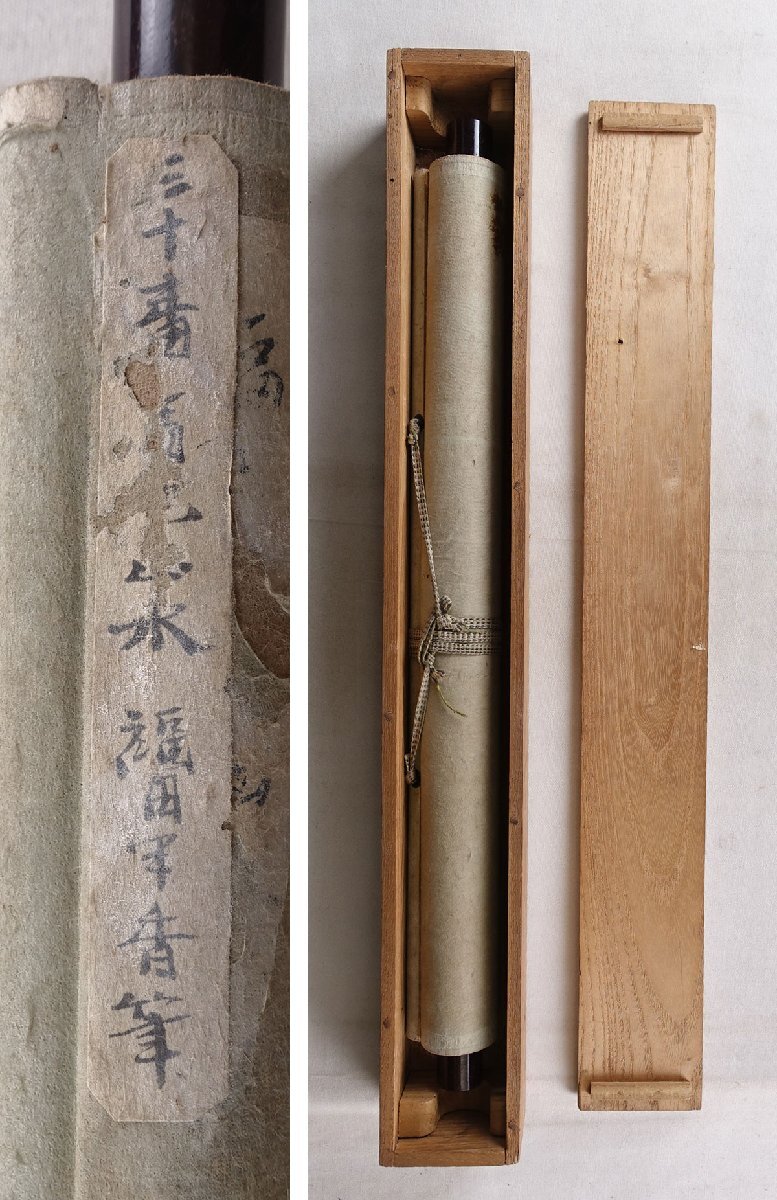 三十番 山水 福田半香筆